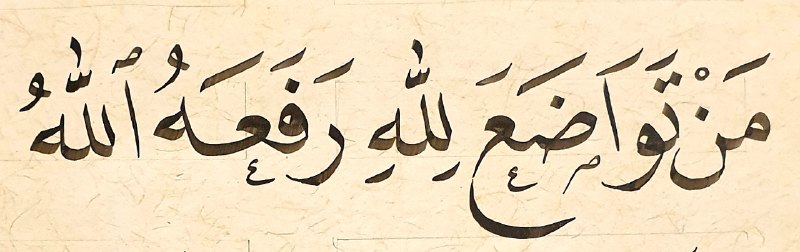 مَنْ تَوَاضَعَ لِلّٰهِ رَفَعَهُ ٱللّٰهُ